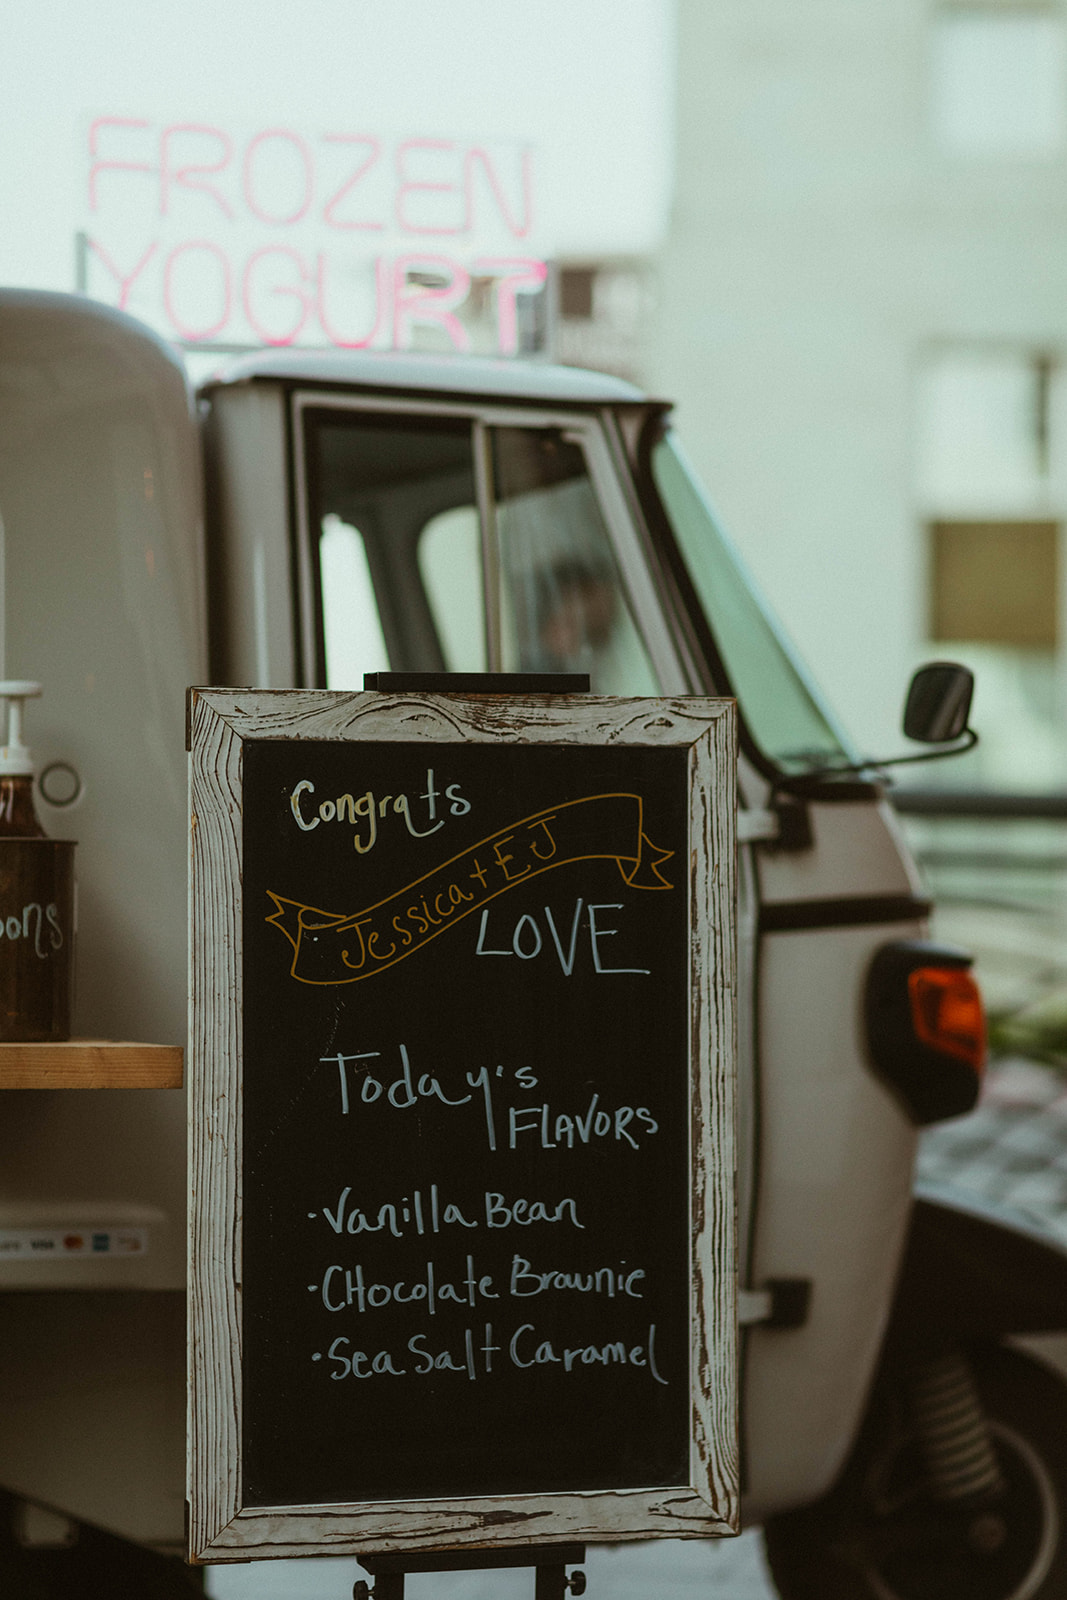 FROZEN
YOGURT
Congrats
Jessica + EJ
LOVE
Today's
FLAVORS
· Vanilla Bean
· CHocolate Brownie
· Sea Salt Caramel
VISA